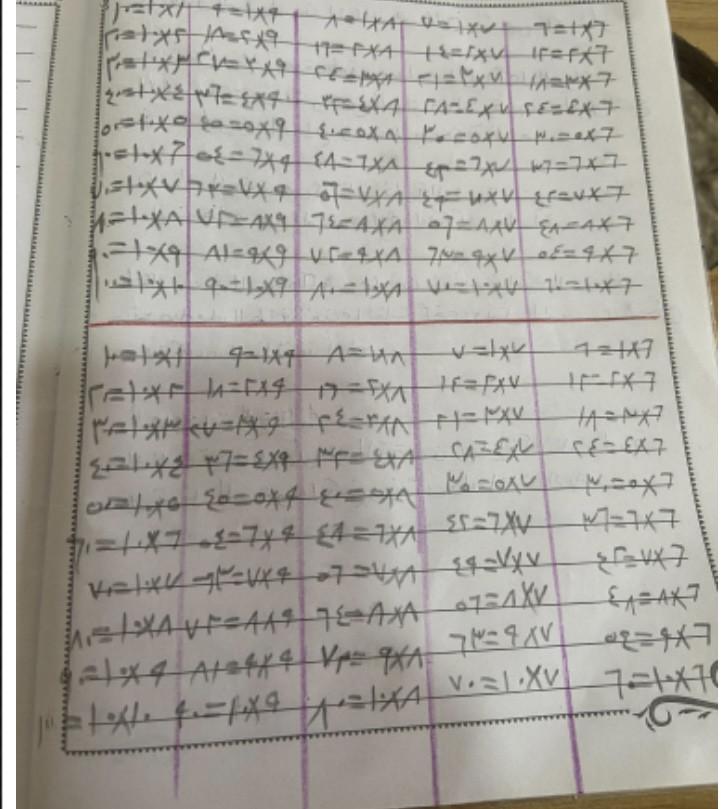 ٦×١=٦ ٧×١=٧ ٨×١=٨ ٩×١=٩ ١×١٠=١٠
٦×٢=١٢ ٧×٢=١٤ ٨×٢=١٦ ٩×٢=١٨ ٢×١٠=٢٠
٦×٣=١٨ ٧×٣=٢١ ٨×٣=٢٤ ٩×٣=٢٧ ٣×١٠=٣٠
٦×٤=٢٤ ٧×٤=٢٨ ٨×٤=٣٢ ٩×٤=٣٦ ٤×١٠=٤٠
٦×٥=٣٠ ٧×٥=٣٥ ٨×٥=٤٠ ٩×٥=٤٥ ٥×١٠=٥٠
٦×٦=٣٦ ٧×٦=٤٢ ٨×٦=٤٨ ٩×٦=٥٤ ٦×١٠=٦٠
٦×٧=٤٢ ٧×٧=٤٩ ٨×٧=٥٦ ٩×٧=٦٣ ٧×١٠=٧٠
٦×٨=٤٨ ٧×٨=٥٦ ٨×٨=٦٤ ٩×٨=٧٢ ٨×١٠=٨٠
٦×٩=٥٤ ٧×٩=٦٣ ٨×٩=٧٢ ٩×٩=٨١ ٩×١٠=٩٠
٦×١٠=٦٠ ٧×١٠=٧٠ ٨×١٠=٨٠ ٩×١٠=٩٠ ١٠×١٠=١٠٠
٦×١=٦ ٧×١=٧ ٨×١=٨ ٩×١=٩ ١×١٠=١٠
٦×٢=١٢ ٧×٢=١٢ ٨×٢=١٦ ٩×٢=١٨ ٢×١٠=٢٠
٦×٣=١٨ ٧×٣=٢١ ٨×٣=٢٤ ٩×٣=٢٧ ٣×١٠=٣٠
٦×٤=٢٤ ٧×٤=٢٨ ٨×٤=٣٢ ٩×٤=٣٦ ٤×١٠=٤٠
٦×٥=٣٠ ٧×٥=٣٥ ٨×٥=٤٠ ٩×٥=٤٥ ٥×١٠=٥٠
٦×٦=٣٦ ٧×٦=٤٢ ٨×٦=٤٨ ٩×٦=٥٤ ٦×١٠=٦٠
٦×٧=٤٢ ٧×٧=٤٩ ٨×٧=٥٦ ٩×٧=٦٣ ٧×١٠=٧٠
٦×٨=٤٨ ٧×٨=٥٦ ٨×٨=٦٤ ٩×٨=٧٢ ٨×١٠=٨٠
٦×٩=٥٤ ٧×٩=٦٣ ٨×٩=٧٢ ٩×٩=٨١ ٩×١٠=٩٠
٦×١٠=٦٠ ٧×١٠=٧٠ ٨×١٠=٨٠ ٩×١٠=٩٠ ١٠×١٠=١٠٠